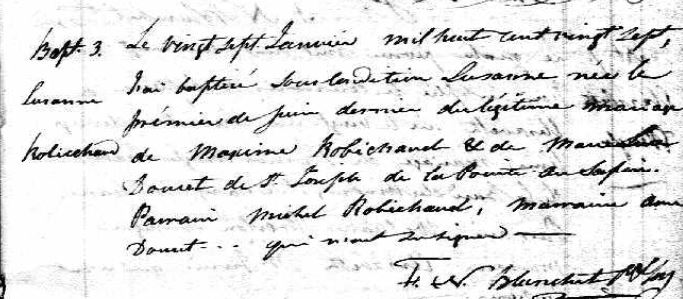 Bapt. 3. Le vingt sept Janvier mil huit cent vingt sept,
Susanne J'ai baptisé sous condition Susanne née le
prémier de juin dernier du légitime mariage
Robicchaud de Maxime Robichaud & de Marie
Doucet de St Joseph de la Pointe au Sapin.
Parrain Michel Robichaud, Marraine Anne
Doucet... qui n'ont su signer
F. N. Blanchet